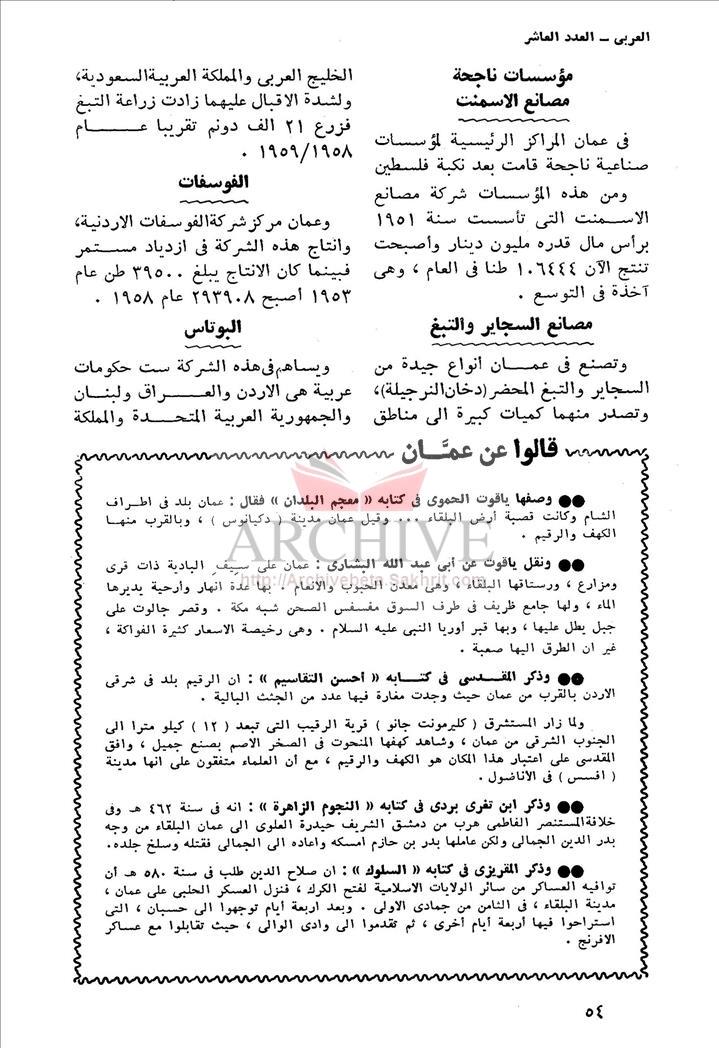 العربى ــ العدد العاشر
مؤسسات ناجحة
مصانع الاسمنت
فى عمان المراكز الرئيسية لمؤسسات
صناعية ناجحة قامت بعد نكبة فلسطين
ومن هذه المؤسسات شركة مصانع
الاسـمنت التى تأسست سنة ١٩٥١
برأس مال قدره مليون دينار وأصبحت
تنتج الآن ١٠٦٤٤٤ طنا فى العام ، وهى
آخذة فى التوسع .
مصانع السجاير والتبغ
وتصنع فى عمـان أنواع جيدة من
السجاير والتبغ المحضر (دخان النرجيلة)،
وتصدر منهما كميات كبيرة الى مناطق
الخليج العربى والمملكة العربية السعودية،
ولشدة الاقبال عليهما زادت زراعة التبغ
فزرع ٢١ الف دونم تقريبا عـــام
١٩٥٩/١٩٥٨ .
الفوسفات
وعمان مركز شركة الفوسفات الاردنية،
وانتاج هذه الشركة فى ازدياد مسـتمر
فبينما كان الانتاج يبلغ ٣٩٥٠٠ طن عام
١٩٥٣ أصبح ٢٩٣٩٠٨ عام ١٩٥٨ .
البوتاس
ويساهم فى هذه الشركة ست حكومات
عربية هى الاردن والعــراق ولبنـان
والجمهورية العربية المتحـدة والمملكة
قالوا عن عمَّـان
●● وصفها ياقوت الحموى فى كتابه « معجم البلدان » فقال : عمان بلد فى اطـراف
الشام وكانت قصبة أرض البلقاء ... وقيل عمان مدينة ( دكيانوس ) ، وبالقرب منهـا
الكهف والرقيم .
ARCHIVE
●● ونقل ياقوت عن أبى عبد الله البشارى : عمان على سيف البادية ذات قرى
http://Archivebeta.Sakhrit.com
ومزارع ، ورستاقها البلقاء ، وهى معدن الحبوب والانعام . بها عدة انهار وأرحية يديرها
الماء ، ولها جامع ظريف فى طرف السوق مفسفس الصحن شبه مكة . وقصر جالوت على
جبل يطل عليها ، وبها قبر أوريا النبى عليه السلام . وهى رخيصة الاسعار كثيرة الفواكة ،
غير ان الطرق اليها صعبة .
●● وذكر المقـدسى فى كتـــابه « أحسن التقاسيم » : ان الرقيم بلد فى شرقى
الاردن بالقرب من عمان حيث وجدت مغارة فيها عدد من الجثث البالية .
ولما زار المستشرق ( كليرمونت جانو ) قرية الرقيب التى تبعد ( ١٢ ) كيلو مترا الى
الجنوب الشرقى من عمان ، وشاهد كهفها المنحوت فى الصخر الاصم بصنع جميل ، وافق
المقدسى على اعتبار هذا المكان هو الكهف والرقيم ، مع أن العلماء متفقون على انها مدينة
( افسس ) فى الاناضول .
●● وذكر ابن تغرى بردى فى كتابه « النجوم الزاهرة » : انه فى سنة ٤٦٢ هـ وفى
خلافة المستنصر الفاطمى هرب من دمشق الشريف حيدرة العلوى الى عمان البلقاء من وجه
بدر الدين الجمالى ولكن عاملها بدر بن حازم امسكه واعاده الى الجمالى فقتله وسلخ جلده.
●● وذكر المقريزى فى كتابه « السلوك » : ان صلاح الدين طلب فى سنة ٥٨٠ هـ أن
توافيه العساكر من سائر الولايات الاسلامية لفتح الكرك ، فنزل العسكر الحلبى على عمان ،
مدينة البلقاء ، فى الثامن من جمادى الاولى . وبعد اربعة أيام توجهوا الى حسبان ، التى
استراحوا فيها أربعة أيام أخرى ، ثم تقدموا الى وادى الوالى ، حيث تقابلوا مع عساكر
الافرنج .
٥٤